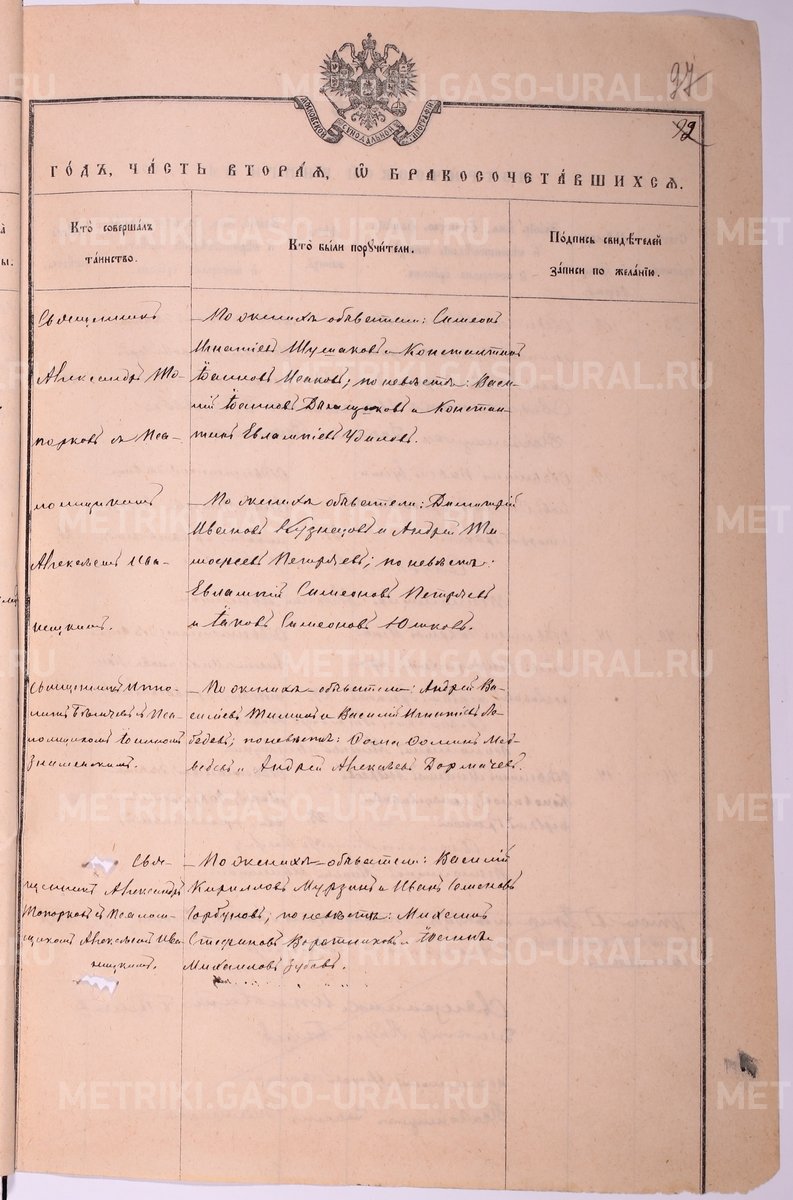 97
92
МОСКОВСКОЙ СѴНОДАЛЬНОЙ ТИПОГРАФІИ
ГО́ДЪ, ЧА́СТЬ ВТОРА́Я, Ѿ БРАКОСОЧЕТА́ВШИХСЯ.
Кто̀ соверша́лъ
та́инство.
Кто̀ бы́ли поручи́тели.
По́дпись свидѣ́телей
за́писи по жела́нію.
Священникъ
Александръ То-
порковъ съ Пса-
ломщикомъ
Алексѣемъ Ива-
ницкимъ.
По женихѣ обыватели: Симеонъ
Игнатіевъ Шушаковъ и Константинъ
Іоанновъ Исаковъ; по невѣстѣ: Васи-
лій Іоанновъ и Констан-
тинъ Евлампіевъ Удиловъ.
По женихѣ обыватели: Димитрій
Ивановъ Кузнецовъ и Андрей Ти-
моѳеевъ по невѣстѣ:
Евлампій Симеоновъ
и Іаковъ Симеоновъ Юшковъ.
Священникъ Иппо-
литъ и Пса-
ломщикомъ Іоанномъ
Знаменскимъ.
По женихѣ обыватели: Андрей Ва-
силіевъ и Василій Игнатіевъ Ле-
бедевъ; по невѣстѣ: Ѳома Ѳоминъ Мед-
вѣдевъ и Андрей Алексѣевъ Дормачевъ.
Свя-
щенникъ Александръ
Топорковъ съ Псалом-
щикомъ Алексѣемъ Ива-
ницкимъ.
По женихѣ обыватели: Василій
Кирилловъ Мурзинъ и Иванъ Семеновъ
Горбуновъ; по невѣстѣ: Михаилъ
Стефановъ Воротниковъ и Іоаннъ
Михаиловъ Зубовъ.
METRIKI.GASO-URAL.RU